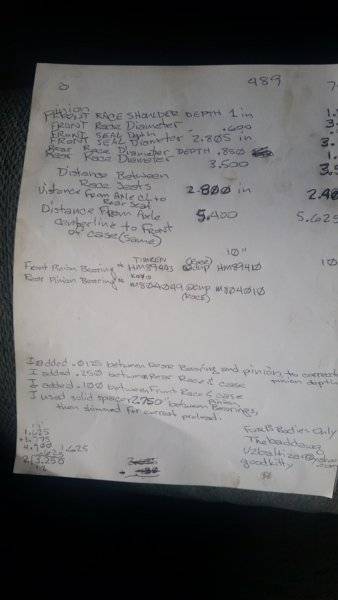 489
7
Pinion
FRONT RACE SHOULDER DEPTH 1 in
1.
FRONT Race Diameter
3.
FRONT SEAL Depth .600
FRONT SEAL Diameter 2.805 in
3.
Rear Race DEPTH .850
1.
Rear Race Diameter 3.500
3.5
Distance Between
Race Seats 2.800 in
2.40
Distance From Axle CL to
Rear Seat
Distance From Axle 5.400
5.625
centerline to Front
of case (same)
10"
10
TIMKEN (Race)
Front Pinion Bearing = HM89443 @cup HM89410
KOYO
Rear Pinion Bearing = M804049 @cup M804010
(Race)
I added .0125 between Rear Bearing and pinion, to correct
pinion depth
I added .250 between Rear Race & case
I added .100 between Front Race & case
I used solid spacer 2.750" between Pinion Bearings,
then shimmed for correct preload.
For B Bodies Only
1.625
Thebaddawg
1.625
goodkitty
2)3.250